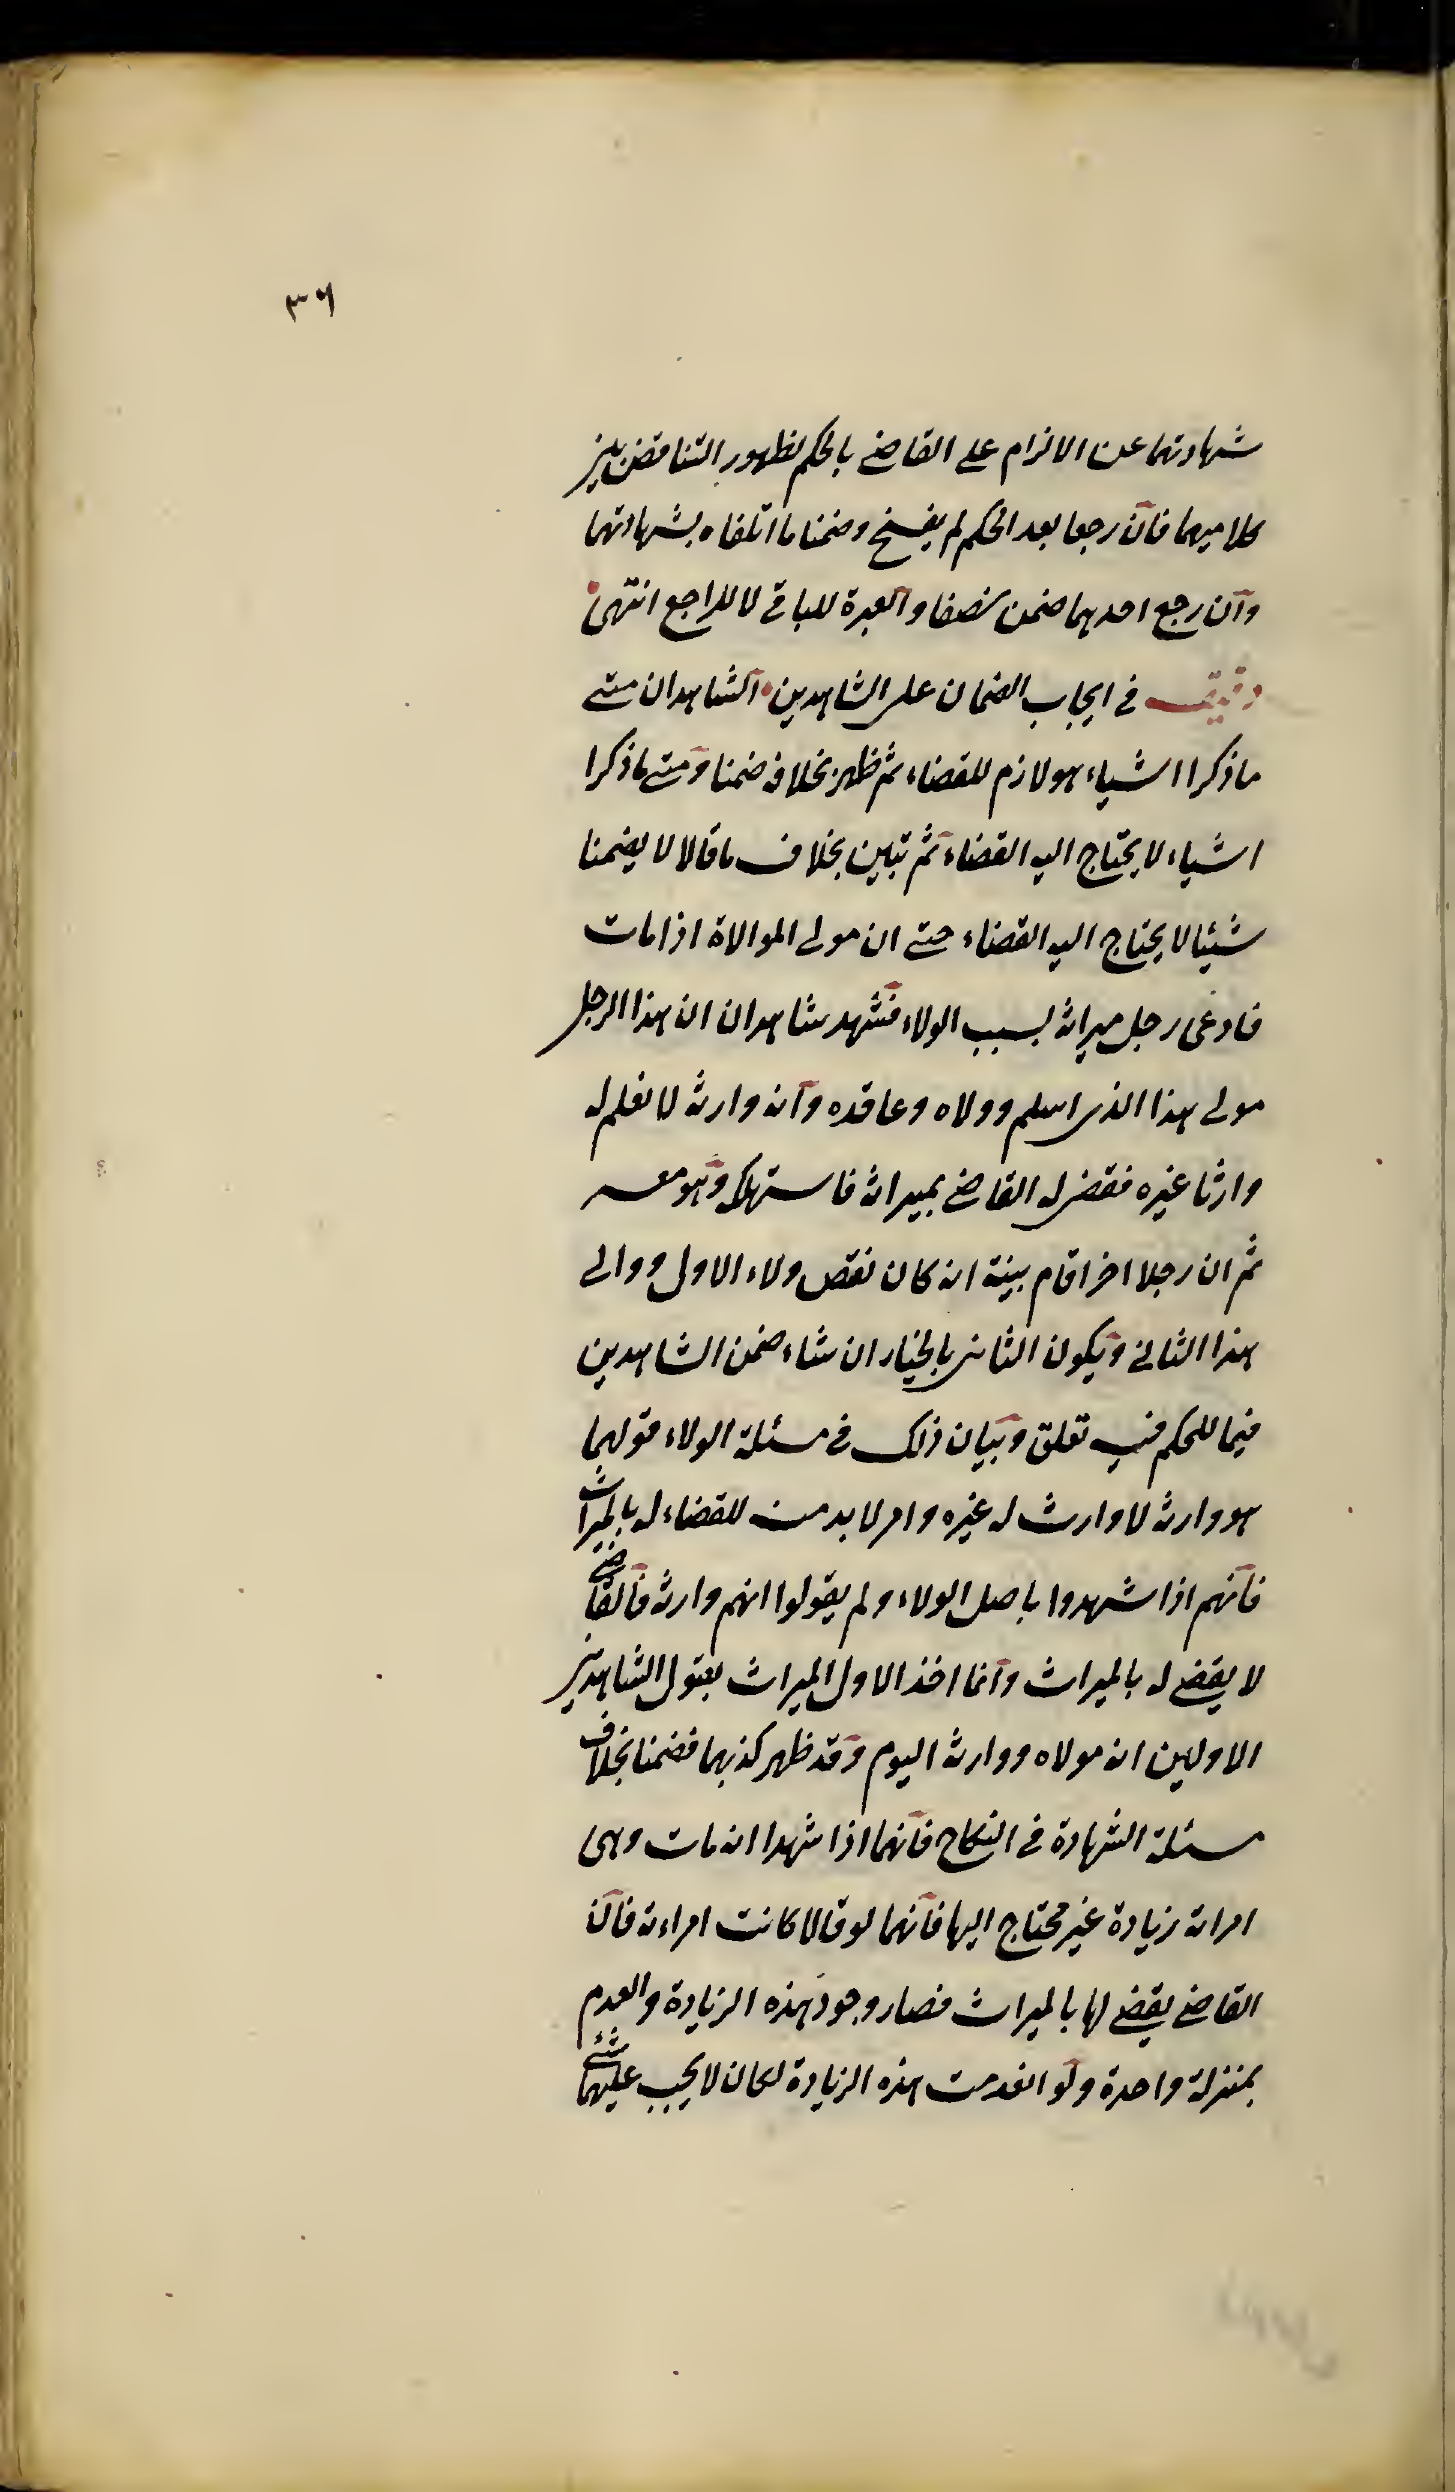 ٣٦
شهادتهما عن الالزام على القاضي بالحكم لظهور التناقض بين
كلاميهما فان رجعا بعد الحكم لم يفسخ وضمنا ما اتلفاه بشهادتهما
وان رجع احدهما ضمن نصفا والعبرة للباقي لا للراجع انتهى
دقيقة في ايجاب الضمان على الشاهدين الشاهدان متى
ما ذكرا اشياء هو لازم للقضاء ثم ظهر بخلافه ضمنا ومتى ما ذكرا
اشياء لا يحتاج اليه القضاء ثم تبين بخلاف ما قالا لا يضمنا
شيئا لا يحتاج اليه القضاء حتى ان مولى الموالاة اذا مات
فادعى رجل ميراثه بسبب الولاء فشهد شاهدان ان هذا الرجل
مولى هذا الذى اسلم وولاه وعاقده وانه وارثه لا نعلم له
وارثا غيره فقضى له القاضي بميراثه فاستهلكه وهو معسر
ثم ان رجلا اخر اقام بينة انه كان نقض ولاء الاول ووالى
هذا الثاني ويكون الثانى بالخيار ان شاء ضمن الشاهدين
فيما للحكم فيه تعلق وبيان ذلك في مسئلة الولاء قولهما
هو وارثه لا وارث له غيره وامر لا بد منه للقضاء له بالميراث
فانهم اذا شهدوا باصل الولاء ولم يقولوا انهم وارثه فالقاضي
لا يقضي له بالميراث وانما اخذ الاول الميراث بقول الشاهدين
الاولين انه مولاه ووارثه اليوم وقد ظهر كذبهما فضمنا بخلاف
مسئلة الشهادة في النكاح فانهما اذا شهدا انه مات وهى
امراته زيادة غير محتاج اليها فانهما لو قالا كانت امراءته فان
القاضي يقضي لها بالميراث فصار وجود هذه الزيادة والعدم
بمنزلة واحدة ولو انعدمت هذه الزيادة لكان لا يجب عليهما شئ